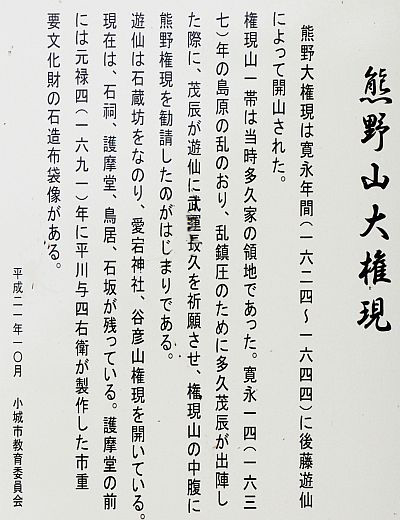 熊野山大権現
熊野大権現は寛永年間(一六二四〜一六四四)に後藤遊仙
によって開山された。
権現山一帯は当時多久家の領地であった。寛永一四(一六三
七)年の島原の乱のおり、乱鎮圧のために多久茂辰が出陣し
た際に、茂辰が遊仙に武運長久を祈願させ、権現山の中腹に
熊野権現を勧請したのがはじまりである。
遊仙は石蔵坊をなのり、愛宕神社、谷彦山権現を開いている。
現在は、石祠、護摩堂、鳥居、石坂が残っている。護摩堂の前
には元禄四(一六九一)年に平川与四右衛が製作した市重
要文化財の石造布袋像がある。
平成二一年一〇月 小城市教育委員会